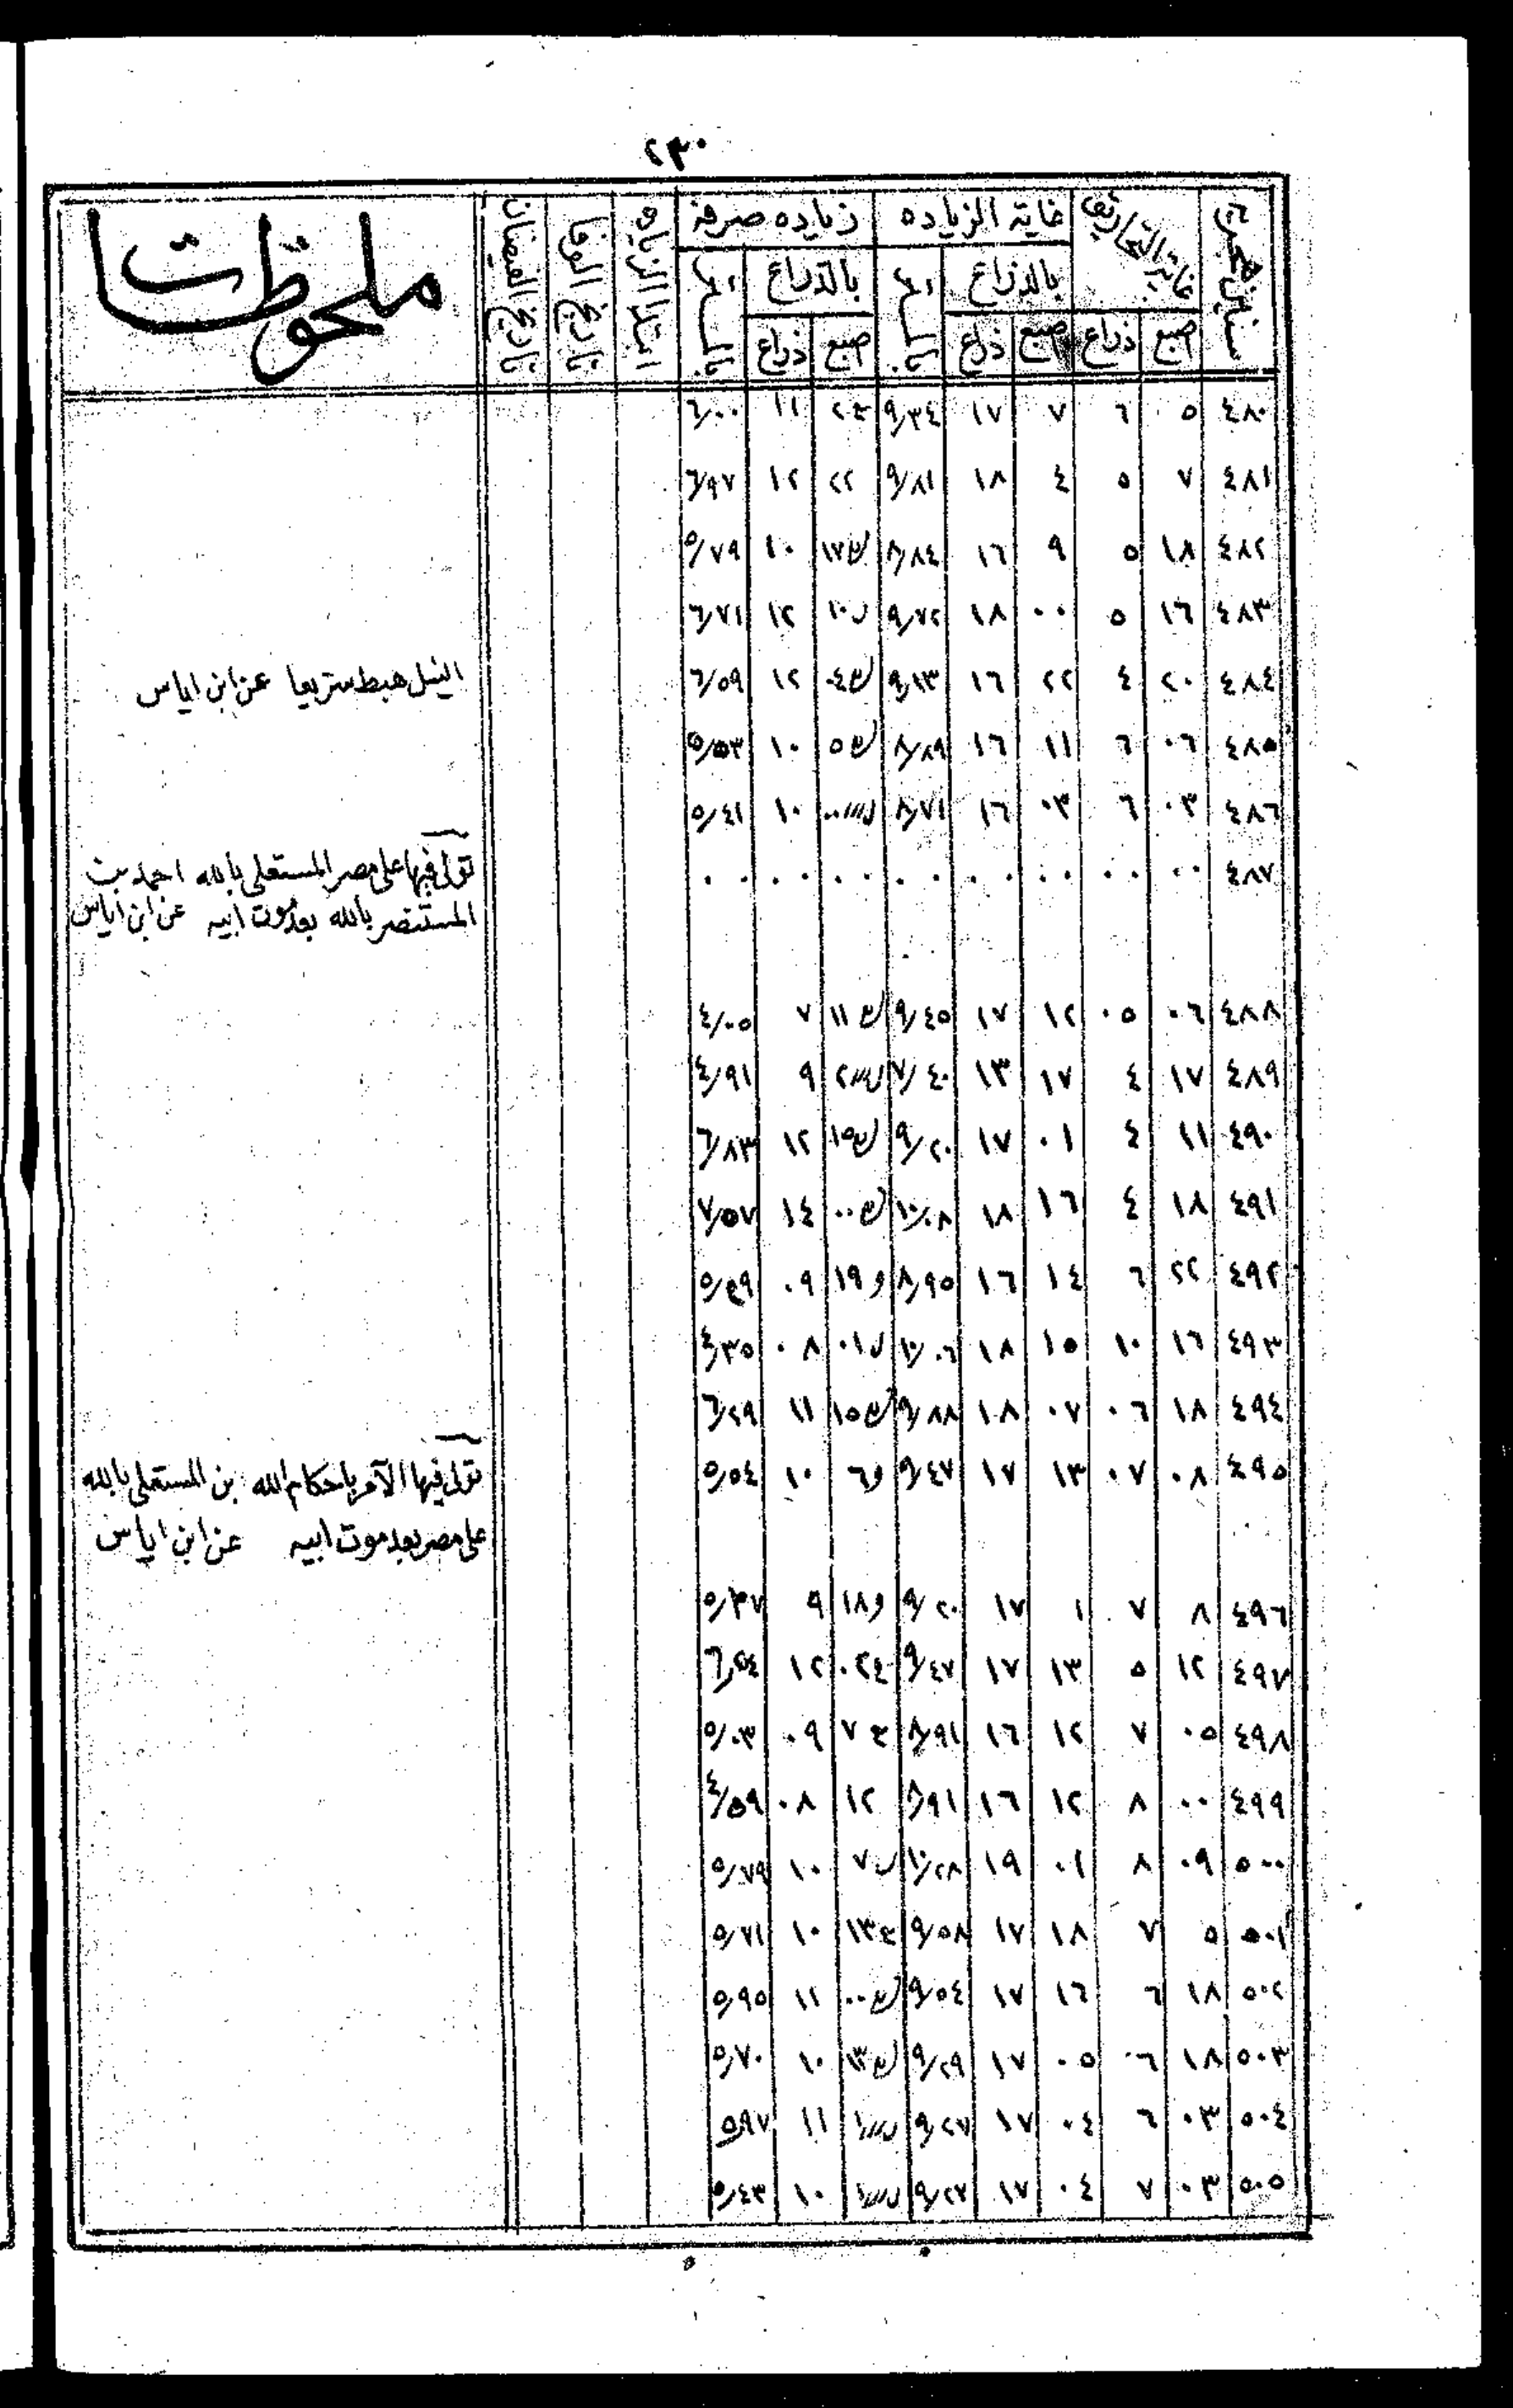 ٢٣٠
سنين هجرية | غاية التحاريق | غاية الزياده | زياده صرفة | ابتدا الزياده | تاريخ الوفا | تاريخ الفيضان | ملحوظات
بالذراع | بالذراع
اصبع | ذراع | اصبع | ذراع | اصبع | ذراع
٤٨٠ | ٥ | ٦ | ٧ | ١٧ | ٩/٣٤ | ١١ | ٦/٠٠
٤٨١ | ٧ | ٥ | ٤ | ١٨ | ٩/٨١ | ٢٢ | ١٢ | ٦/٩٧
٤٨٢ | ١٨ | ٥ | ٩ | ١٦ | ٨/٨٤ | ١٧ | ١٠ | ٥/٧٩
٤٨٣ | ١٦ | ٥ | ٠٠ | ١٨ | ٩/٧٢ | ١٢ | ٦/٧١
٤٨٤ | ٢٠ | ٤ | ٢٢ | ١٦ | ٩/١٣ | ٠٤ | ١٢ | ٦/٥٩ | النيل هبط سريعا عن ابن اياس
٤٨٥ | ٠٦ | ٦ | ١١ | ١٦ | ٨/٨٩ | ٥ | ١٠ | ٥/٥٣
٤٨٦ | ٠٣ | ٦ | ٠٣ | ١٦ | ٨/٧١ | ٠٠ | ١٠ | ٥/٤١
٤٨٧ | ٠٠ | ٠٠ | ٠٠ | ٠٠ | ٠ | ٠٠ | ٠٠ | ٠ | تولى فيها على مصر المستعلى بالله احمد بن
المستنصر بالله بعد موت ابيه عن ابن اياس
٤٨٨ | ٠٦ | ٠٥ | ١٢ | ١٧ | ٩/٤٥ | ١١ | ٧ | ٤/٠٥
٤٨٩ | ١٧ | ٤ | ١٧ | ١٣ | ٧/٤٠ | ٢ | ٩ | ٤/٩١
٤٩٠ | ١١ | ٤ | ٠١ | ١٧ | ٩/٢٠ | ١٥ | ١٢ | ٦/٨٣
٤٩١ | ١٨ | ٤ | ١٦ | ١٨ | ١٠/٠٨ | ٠٠ | ١٤ | ٧/٥٧
٤٩٢ | ٢٢ | ٦ | ١٤ | ١٦ | ٨/٩٥ | و ١٩ | ٠٩
٤٩٣ | ١٦ | ١٠ | ١٥ | ١٨ | ١٠/٠٦ | ٠١ | ٠٨ | ٤/٣٥
٤٩٤ | ١٨ | ٠٦ | ٠٧ | ١٨ | ٩/٨٨ | ١٥ | ١١ | ٦/٢٩
٤٩٥ | ٠٨ | ٠٧ | ١٣ | ١٧ | ٩/٤٧ | و ٦ | ١٠ | ٥/٥٤ | تولى فيها الآمر باحكام الله بن المستعلى بالله
على مصر بعد موت ابيه عن ابن اياس
٤٩٦ | ٨ | ٧ | ١ | ١٧ | ٩/٢٠ | و ١٨ | ٩ | ٥/٣٧
٤٩٧ | ١٢ | ٥ | ١٣ | ١٧ | ٩/٤٧ | ١٢
٤٩٨ | ٠٥ | ٧ | ١٢ | ١٦ | ٨/٩١ | ٧ | ٠٩ | ٥/٠٣
٤٩٩ | ٠٠ | ٨ | ١٢ | ١٦ | ٨/٩١ | ١٢ | ٠٨ | ٤/٥٩
٥٠٠ | ٠٩ | ٨ | ٠٢ | ١٩ | ١٠/٢٨ | ٧ | ١٠ | ٥/٧٩
٥٠١ | ٥ | ٧ | ١٨ | ١٧ | ٩/٥٨ | ١٣ | ١٠ | ٥/٧١
٥٠٢ | ١٨ | ٦ | ١٦ | ١٧ | ٩/٥٤ | ٠٠ | ١١ | ٥/٩٥
٥٠٣ | ١٨ | ٦ | ٠٥ | ١٧ | ٩/٢٩ | ١٣ | ١٠ | ٥/٧٠
٥٠٤ | ٠٣ | ٦ | ٠٤ | ١٧ | ٩/٢٧ | ١ | ١١ | ٥/٩٧
٥٠٥ | ٠٣ | ٧ | ٠٤ | ١٧ | ٩/٢٧ | ١ | ١٠ | ٥/٤٣